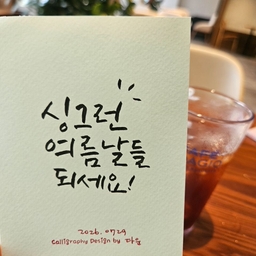 싱그런
여름날들
되세요!
2026. 07 29
Calligraphy Design by 다솜